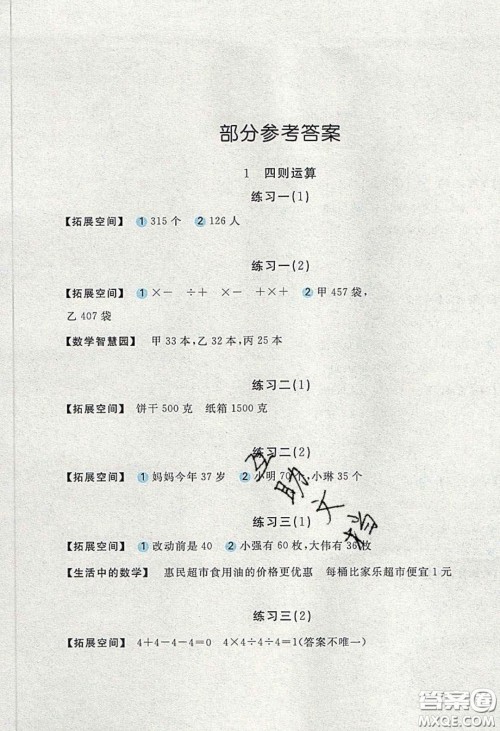 部分参考答案
1 四则运算
练习一(1)
【拓展空间】 1 315 个 2 126 人
练习一(2)
【拓展空间】 1 ×− ÷+ ×− +×+ 2 甲 457 袋，
乙 407 袋
【数学智慧园】 甲 33 本，乙 32 本，丙 25 本
练习二(1)
【拓展空间】 饼干 500 克 纸箱 1500 克
练习二(2)
【拓展空间】 1 妈妈今年 37 岁 2 小明 70 个，小琳 35 个
练习三(1)
【拓展空间】 1 改动前是 40 2 小强有 60 枚，大伟有 36 枚
【生活中的数学】 惠民超市食用油的价格更优惠 每桶比家乐超市便宜 1 元
练习三(2)
【拓展空间】 4+4−4−4=0 4×4÷4÷4=1(答案不唯一)
答案圈
MXQE.COM